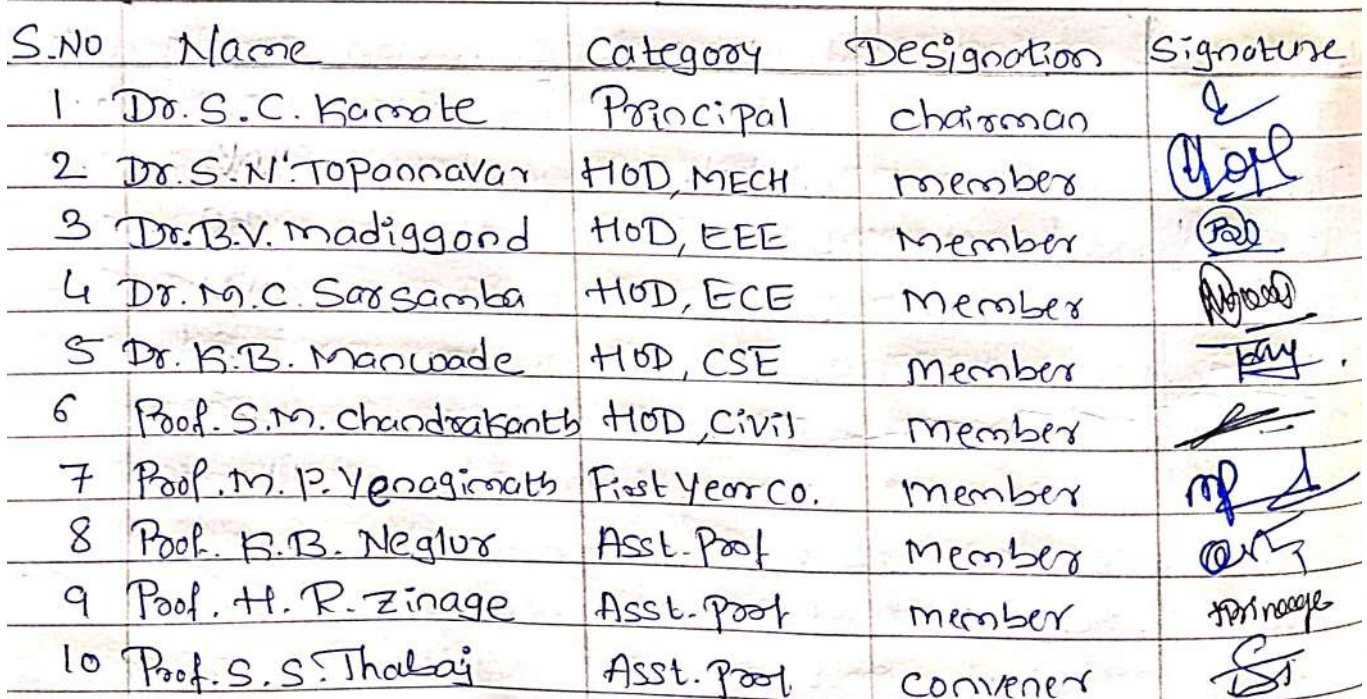 S.NO Name Category Designation Signature
1 Dr. S. C. Kamate Principal chairman
2. Dr. S. N. Topannavar HOD, MECH member
3 Dr. B.V. Madiggond HOD, EEE Member
4 Dr. M. C. Sarsamba HOD, ECE Member
5 Dr. K.B. Manwade HOD, CSE Member
6 Prof. S.M. Chandrakanth HOD, Civil Member
7 Prof. M. P. Yenagimath First Year Co. member
8 Prof. K.B. Neglur Asst. Prof Member
9 Prof. H. R. Zinage Asst. Prof member
10 Prof. S. S. Thabaj Asst. Prof convener